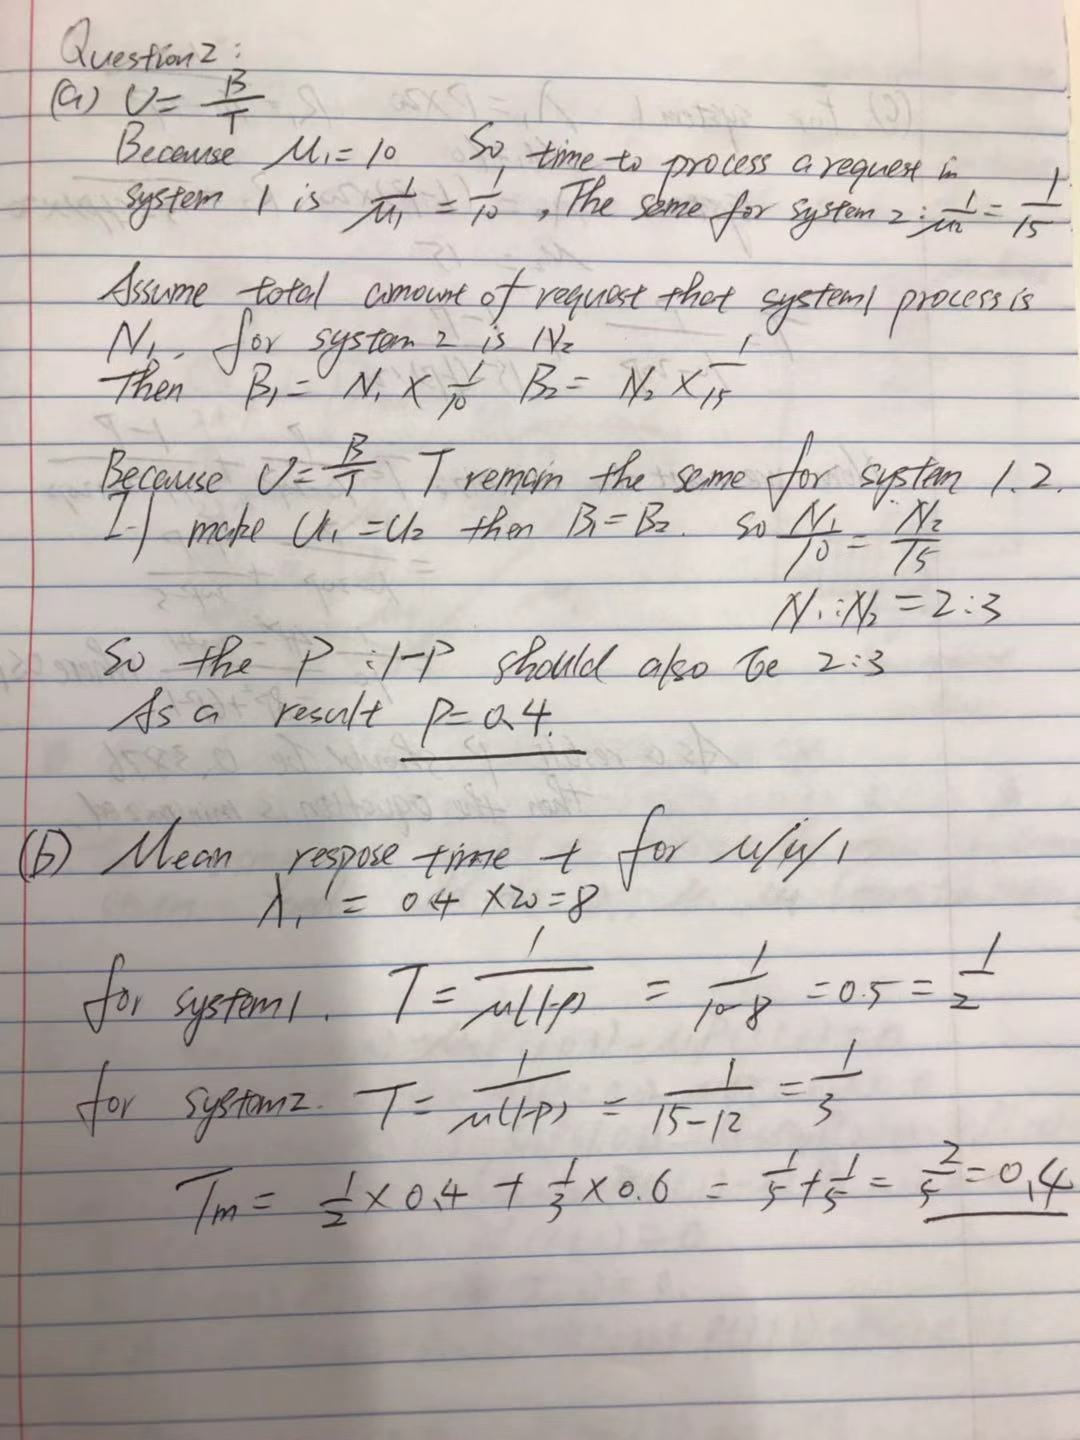 Question 2:
(a) U = B/T
Because μ₁ = 10 So, time to process a request in
system 1 is 1/μ₁ = 1/10, The same for system 2: 1/μ₂ = 1/15
Assume total amount of request that system 1 process is
N₁, for system 2 is N₂
Then B₁ = N₁ × 1/10 B₂ = N₂ × 1/15
Because U = B/T T remain the same for system 1.2.
If make U₁ = U₂ then B₁ = B₂. so N₁/10 = N₂/15
N₁:N₂ = 2:3
So the P : 1-P should also be 2:3
As a result P = 0.4.
(b) Mean respose time t for M/M/1
λ₁ = 0.4 × 20 = 8
for system 1. T = 1/μ(1-ρ) = 1/10-8 = 0.5 = 1/2
for system 2. T = 1/μ(1-ρ) = 1/15-12 = 1/3
Tm = 1/2 × 0.4 + 1/3 × 0.6 = 1/5 + 1/5 = 2/5 = 0.4